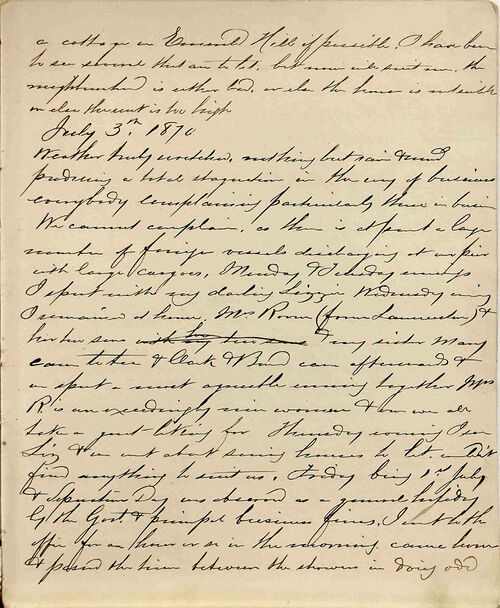 a cottage in Emerald Hill if possible. I have been
to see several that are to let, but none will suit me. the
neighbourhood is either bad, or else the house is unsuitable
or else the rent is too high
July 3rd. 1870
Weather truly wretched, nothing but rain & wind
producing a total stagnation in the way of business
everybody complaining particularly those in business
We cannot complain, as there is at present a large
number of foreign vessels discharging at our pier
with large cargoes. Monday & Tuesday evenings
I spent with my darling Lizzie Wednesday evening
I remained at home. Mrs Room (from Launceston) &
her two sons with her two sons & my sister Mary
came to tea & Clark & Bond came afterwards &
we spent a most agreeable evening together Mrs
R is an exceedingly nice woman & one we all
take a great liking for Thursday evening I saw
Lizz & we went about seeing houses to let, couldn't
find anything to suit us. Friday being 1st July
& Separation Day was observed as a general holiday
by the Govt. & principal business firms. I went to the
office for an hour or so in the morning. came home
& passed the time between the showers in doing odd